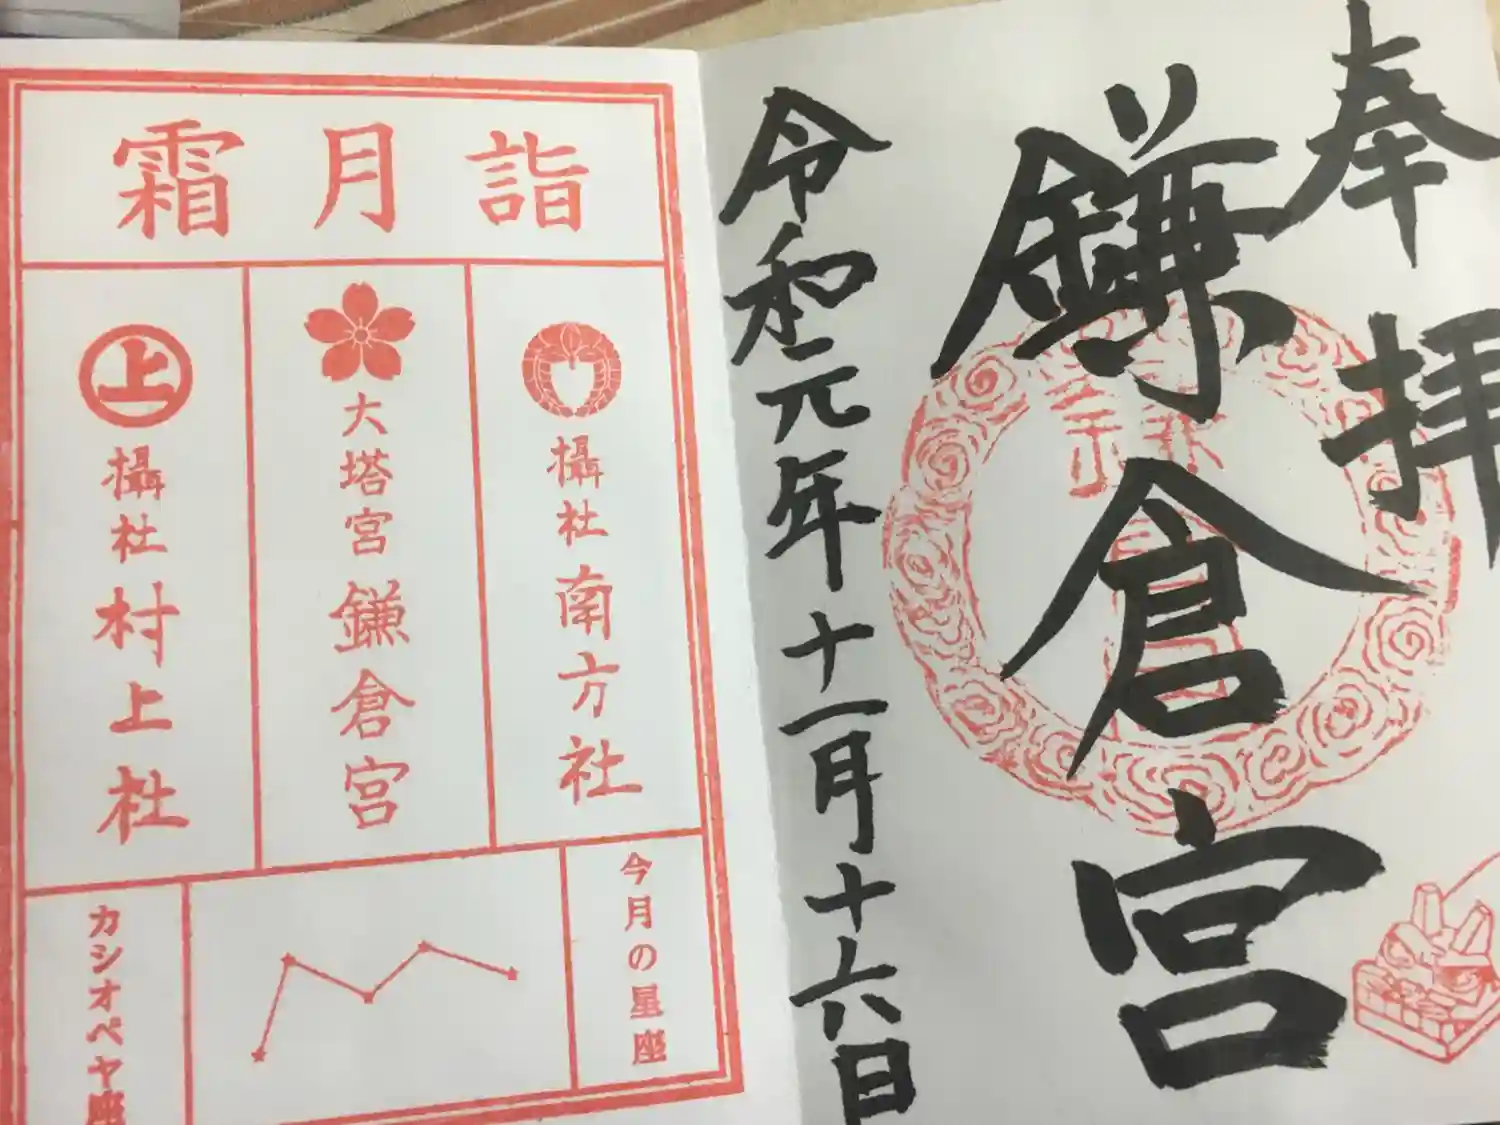 奉拝
鎌倉宮
令和元年十一月十六日
霜月詣
攝社 南方社
大塔宮 鎌倉宮
上
攝社 村上社
今月の星座
カシオペヤ座